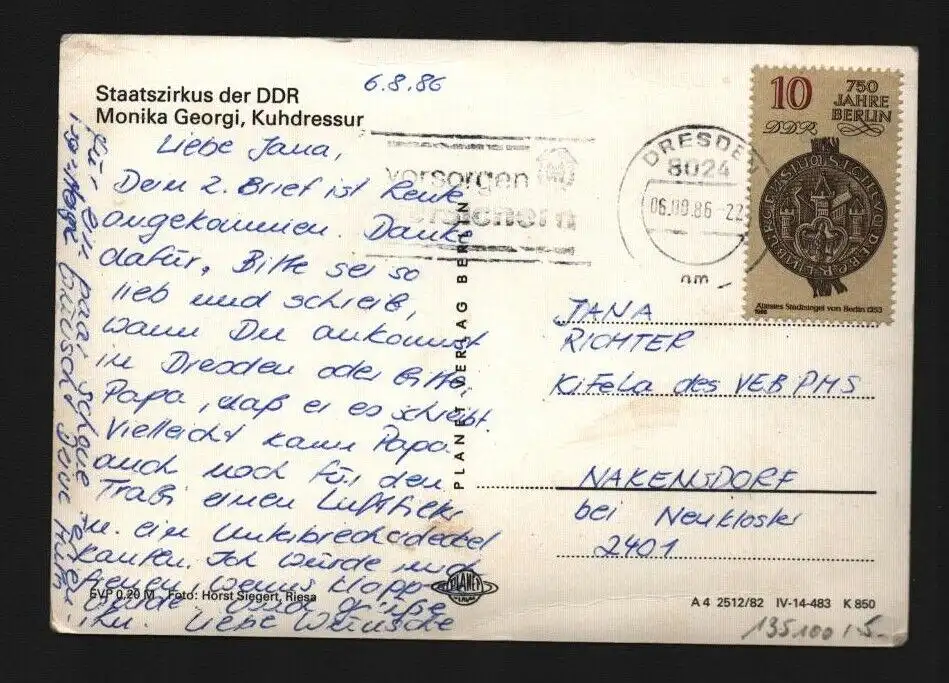 6.8.86
Staatszirkus der DDR
Monika Georgi, Kuhdressur
Liebe Jana,
Dein 2. Brief ist heute
angekommen. Danke
dafür, Bitte sei so
lieb und schreib,
wann Du ankommst
in Dresden oder bitte
Papa, daß er es schreibt.
Vielleicht kann Papa
auch noch für den
Trabi einen Luftfilter
u. ein Unterbrecherdeckel
kaufen. Ich würde mich
freuen, wenns klappen
würde. Grüße
ihn. Liebe Wünsche
Für ein paar schöne
wünscht Deine
vorsorgen
versichern
DRESDEN
8024
06.09.86-22
nm
10
DDR
750
JAHRE
BERLIN
Ältestes Stadtsiegel von Berlin 1253
1986
JANA
RICHTER
KiFeLa des VEB PMS
NAKENSDORF
bei Neukloster
2401
PLANET VERLAG BERLIN
PLANET
EVP 0,20 M Foto: Horst Siegert, Riesa
A 4 2512/82 IV-14-483 K 850
135100 1.5.-